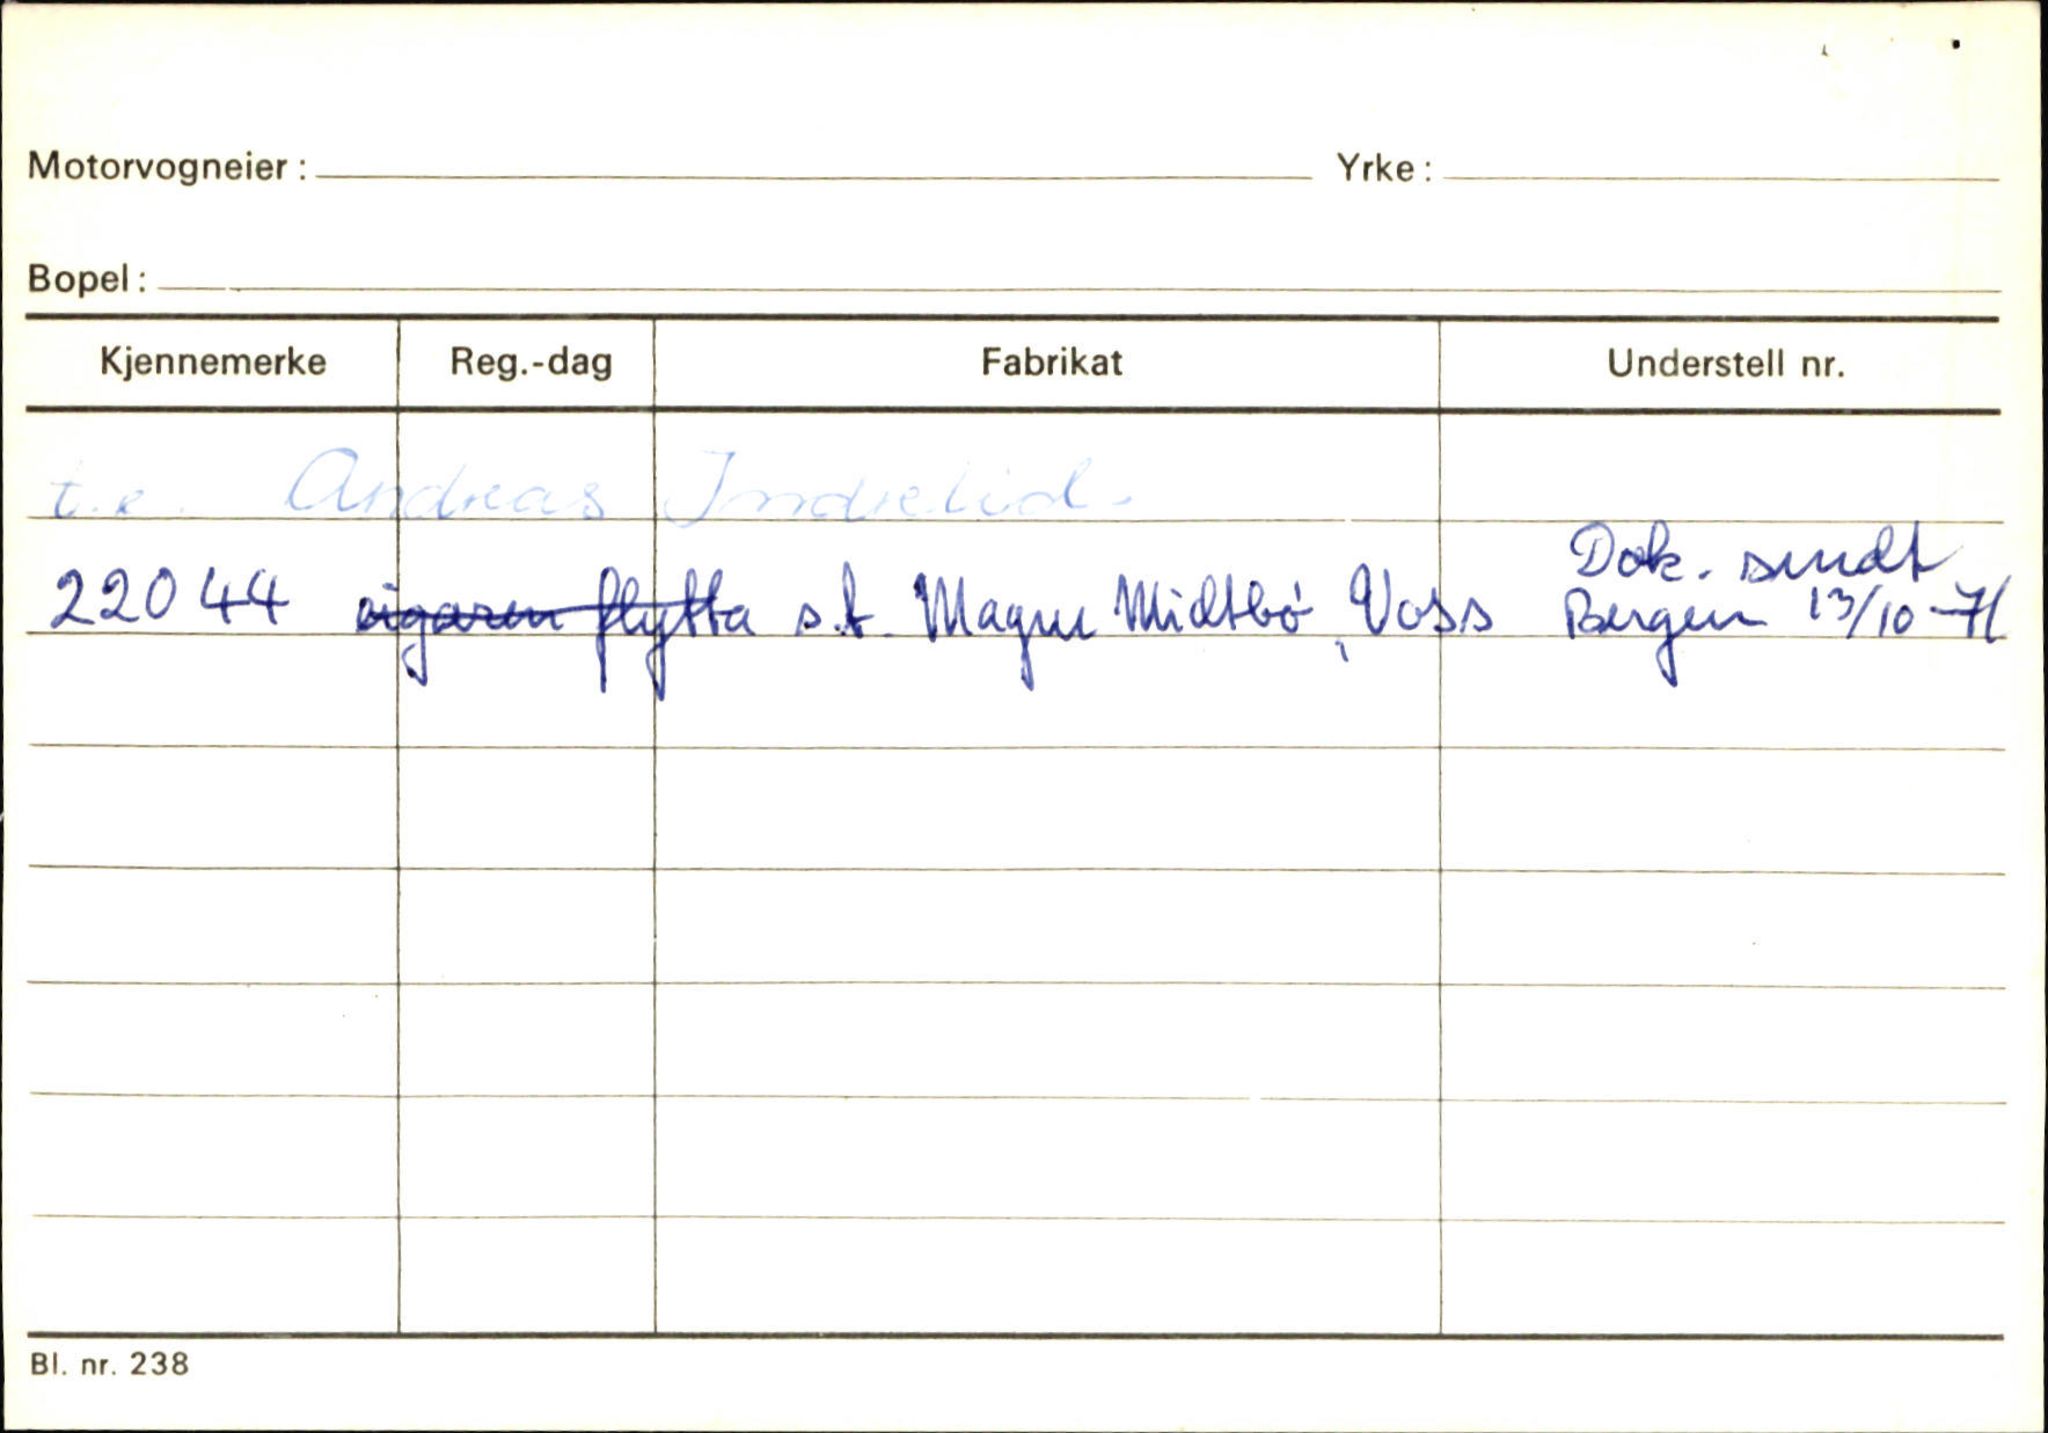 Motorvogneier: Yrke:
Bopel:
Kjennemerke Reg.-dag Fabrikat Understell nr.
t.e. Andreas Indrelid.
Dok. sendt
22044 eigaren flytta s.t. Magne Midtbø, Voss Bergen 13/10-71
Bl. nr. 238